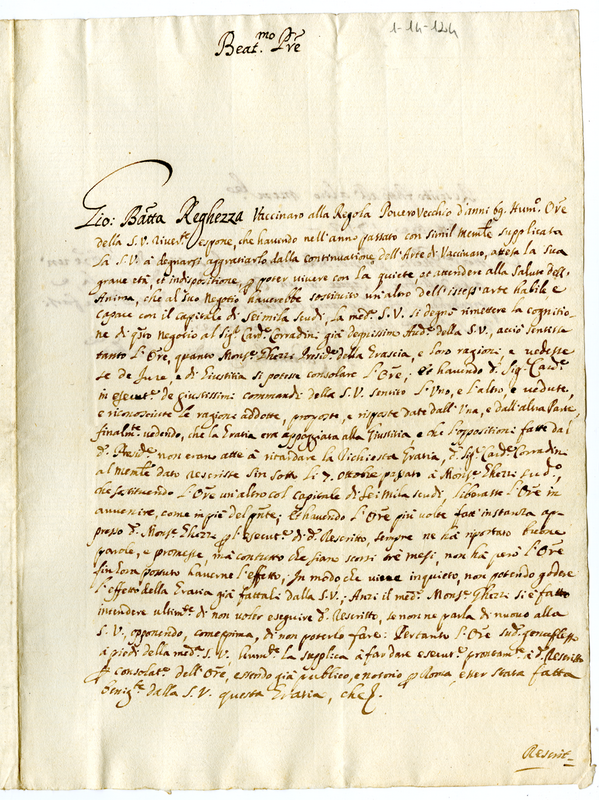 1-14-124
Beat.mo Pre
Gio: Batta Reghezza Vaccinaro alla Regola Povero Vecchio d'anni 69. Hum.o Ore
della S.V. River.te espone, che havendo nell'anno passato con simil mem.le supplicata
la S.V. à degnarsi aggratiarlo dalla continuatione dell'Arte di Vaccinaro, attesa la sua
grave età, et indispositione, p poter vivere con la quiete, et attendere alla salute dell'
Anima, che al suo Negotio haverebbe sostituito un'altro dell'istess'arte habile e
capace con il capitale di seimila scudi, la med.a S.V. si degnò rimettere la cognitio=
ne di qsto Negotio al Sig.r Card. Corradini già degnissimo Aud.re della S.V., acciò sentisse
tanto l'Ore, quanto Mons.r Ghezzi Presid.e della Grascia, e loro ragioni, e vedesse
se de Jure, e di Giustitia si potesse consolare l'Ore; Et havendo d.o Sig.r Card.e
in esecut.ne de giustissimi commandi della S.V. sentito l'Uno, e l'altro, e vedute,
e riconosciute le ragione addotte, proposte, e risposte date dall'Una, e dall'altra Parte,
finalm.te vedendo, che la Gratia era appoggiata alla Giustitia, e che l'oppositioni fatte dal
d.o Presid.e non erano atte à ritardare la richiesta Gratia, d.o Sig.r Card.e Corradini
al mem.le dato rescrisse sin sotto li 7. Ottobre passato à Mons.r Ghezzi sud.o,
che sostituendo l'Ore un'altro col capitale di seimila scudi, liberasse l'Ore in
avvenire, come in piè del pnte; Et havendo l'Ore più volte fatt'instanza ap=
presso d.o Mons.r Ghezzi p l'esecut.ne di d.o Rescritto, sempre ne hà riportato buone
parole, e promesse, mà contutto che siano scorsi trè mesi, non hà però l'Ore
sin'hora possuto haverne l'effetto, In modo che vive inquieto, non potendo godere
l'effetto della Gratia già fattali dalla S.V.; Anzi il med.o Mons.r Ghezzi si è fatto
intendere ultim.te di non voler eseguire d.o Rescritto, se non ne parla di nuovo alla
S.V., opponendo, come prima, di non poterlo fare: Pertanto l'Ore sud.o genuflesso
à piedi della med.a S.V. la supplica à far dare esecut.ne prontam.te à d.o Rescritto
p consolat.ne dell'Ore, essendo già publico, e notorio p Roma esser stata fatta
dalla S.V. questa Gratia, che &.
Rescrit=